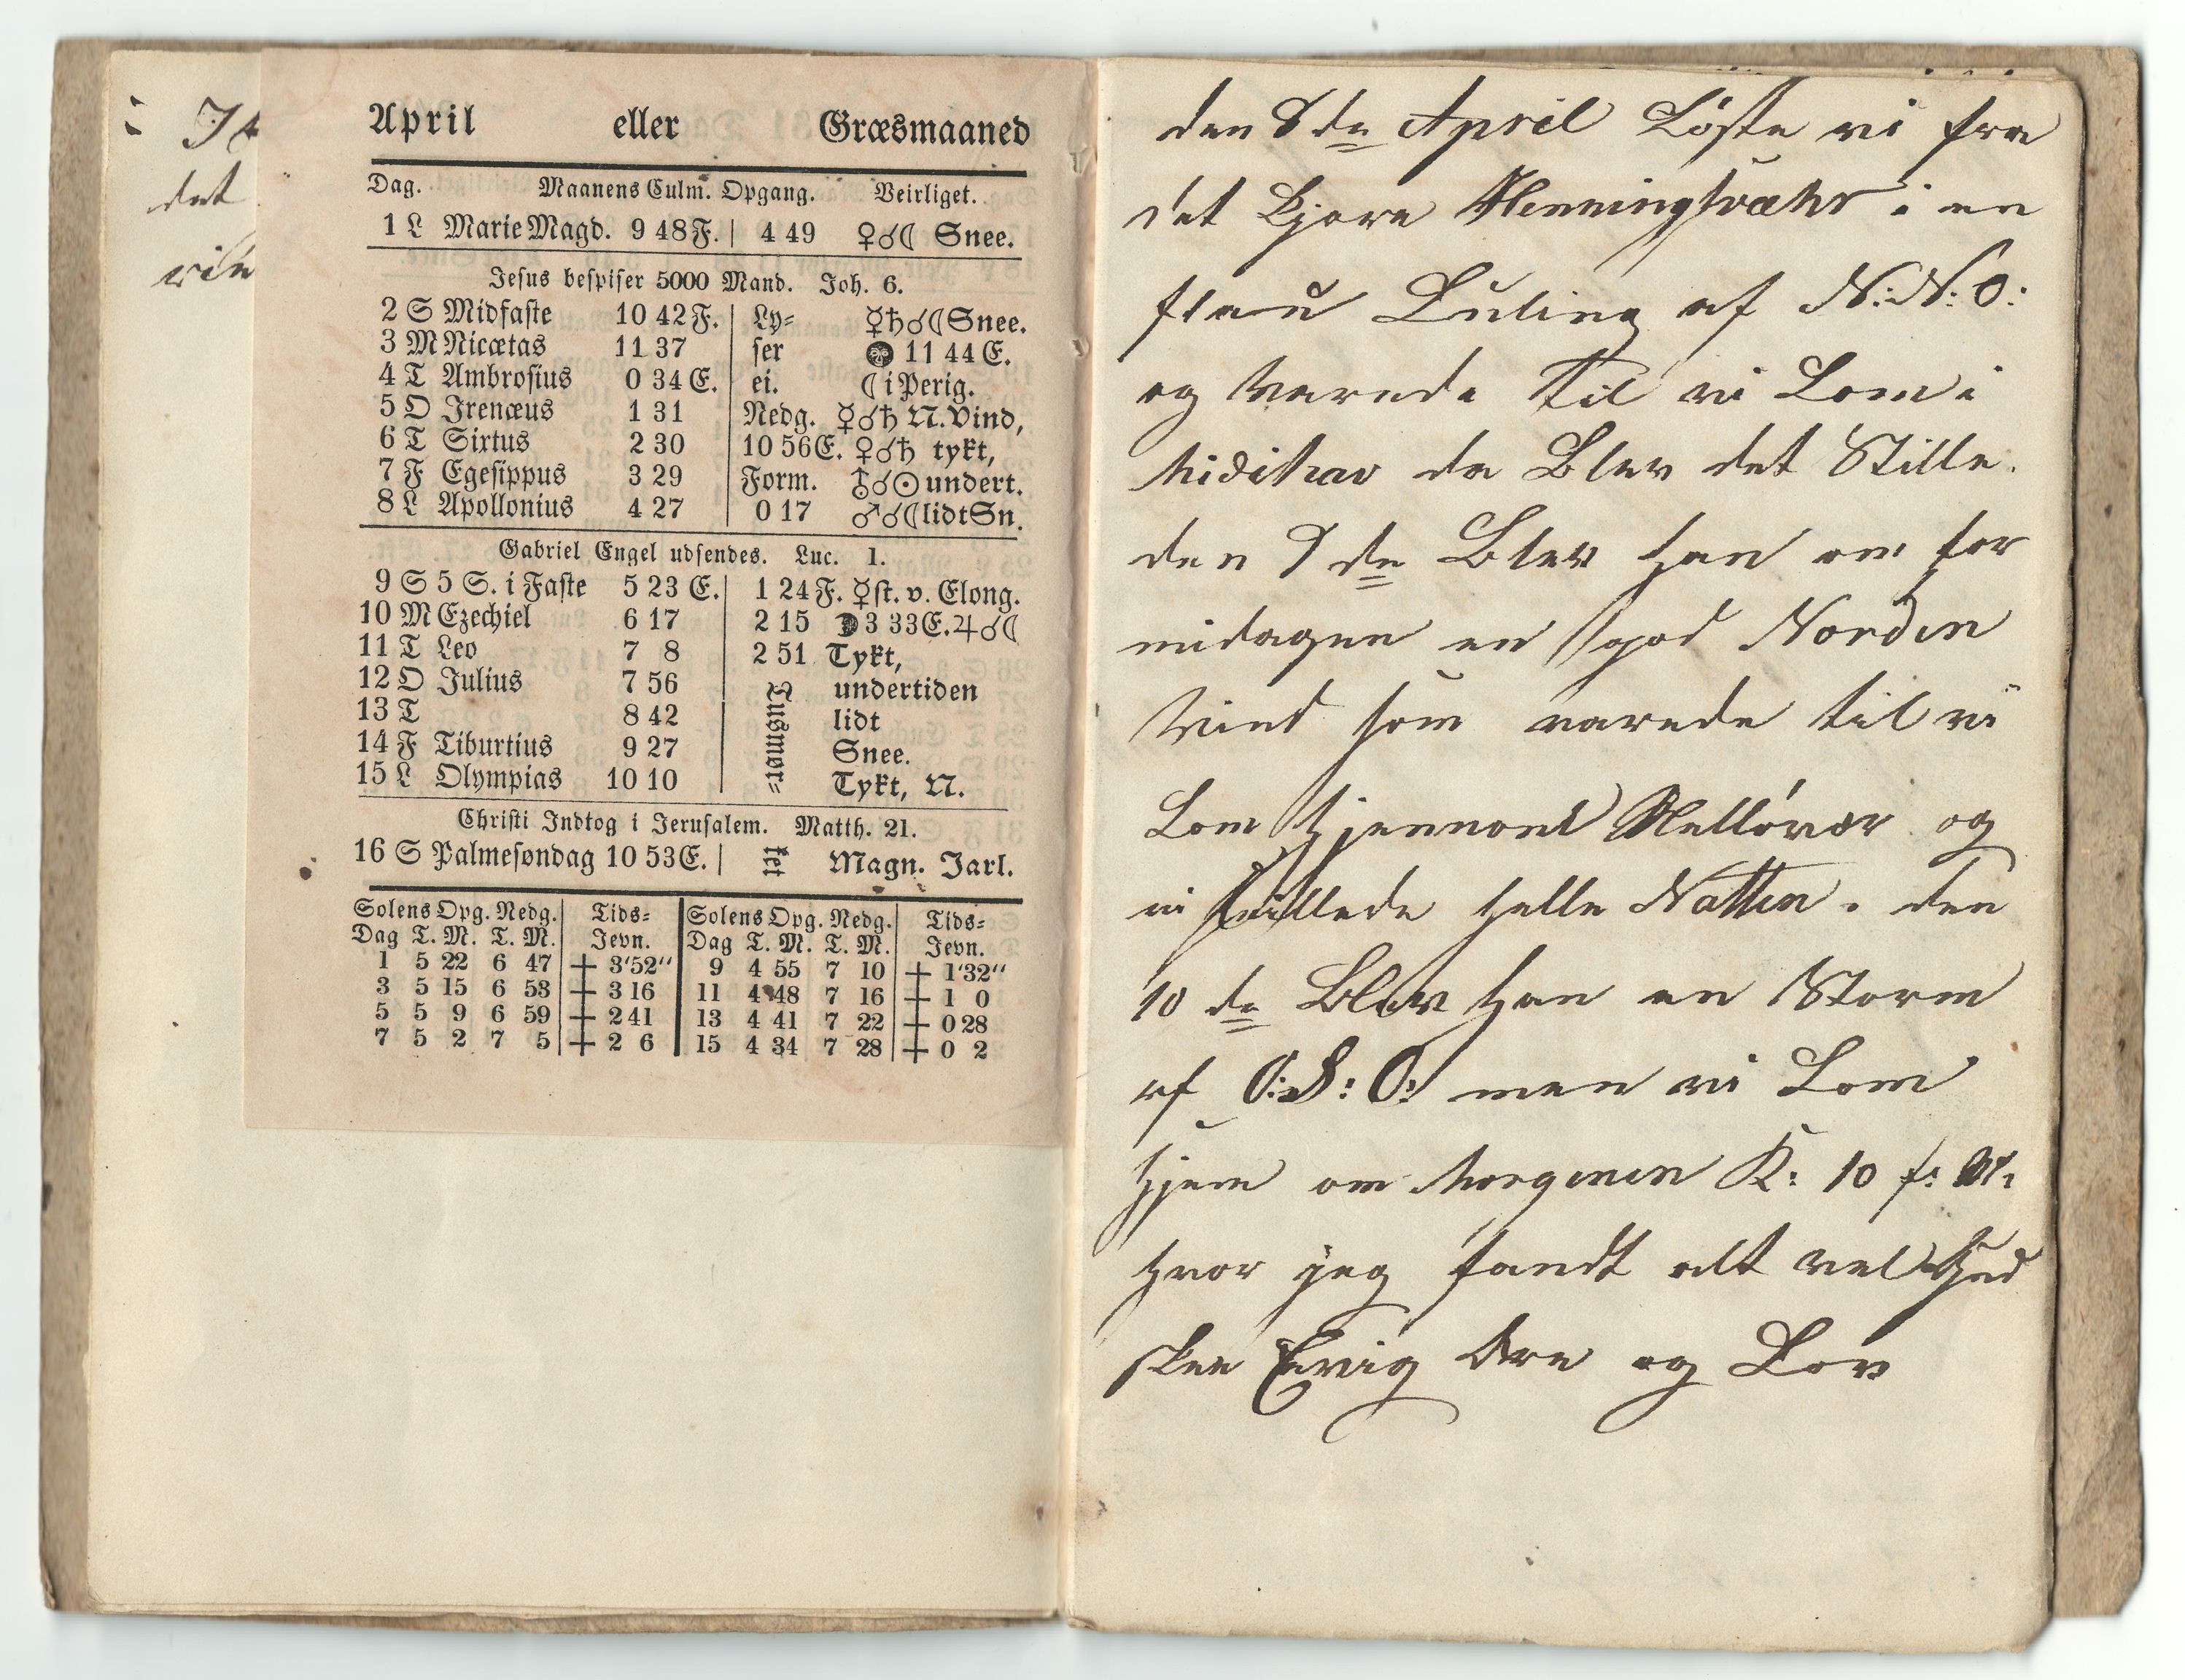 : I
det
vin
April eller Græsmaaned
Dag. Maanens Culm. Opgang. Veirliget.
1 L Marie Magd. 9 48 F. | 4 49 ♀☌☾ Snee.
Jesus bespiser 5000 Mand. Joh. 6.
2 S Midfaste 10 42 F. | Ly= ☿♄☌☾ Snee.
3 M Nicætas 11 37 | ser 🌑 11 44 E.
4 T Ambrosius 0 34 E. | ei. ☾ i Perig.
5 O Irenæus 1 31 | Nedg. ☿☌♄ N. Vind,
6 T Sixtus 2 30 | 10 56 E. ♀☌♄ tykt,
7 F Egesippus 3 29 | Form. ⛢☌☉ undert.
8 L Apollonius 4 27 | 0 17 ♂☌☾ lidt Sn.
Gabriel Engel udsendes. Luc. 1.
9 S 5 S. i Faste 5 23 E. | 1 24 F. ☿ st. v. Elong.
10 M Ezechiel 6 17 | 2 15 ☽ 3 33 E. ♃☌☾
11 T Leo 7 8 | 2 51 Tykt,
12 O Julius 7 56 | undertiden
13 T 8 42 | lidt
14 F Tiburtius 9 27 | Snee.
15 L Olympias 10 10 | Tykt, N.
Lusmør=
Christi Indtog i Jerusalem. Matth. 21.
16 S Palmesøndag 10 53 E. | tet Magn. Jarl.
Solens Opg. Nedg. | Tids= | Solens Opg. Nedg. | Tids=
Dag T. M. T. M. | Jevn. | Dag T. M. T. M. | Jevn.
1 5 22 6 47 | + 3'52" | 9 4 55 7 10 | + 1'32"
3 5 15 6 53 | + 3 16 | 11 4 48 7 16 | + 1 0
5 5 9 6 59 | + 2 41 | 13 4 41 7 22 | + 0 28
7 5 2 7 5 | + 2 6 | 15 4 34 7 28 | + 0 2
den 8de April Löste vi fra
det Kjære Henningsvæhr i en
flau Kuling af N:N:O:
og varede til vi Kom i
hav da Blev det Stille.
den 9de Blev han om for
midagen en god Norden
Vind som varede til vi
Kom hjennom og
vi seillede helle Natten. den
10de Blev han en Storm
af O:S:O: men vi Kom
hjem om Morgenen K: 10 f: M:
hvor jeg fandt alt vel Gud
skee Evig Ære og Lov